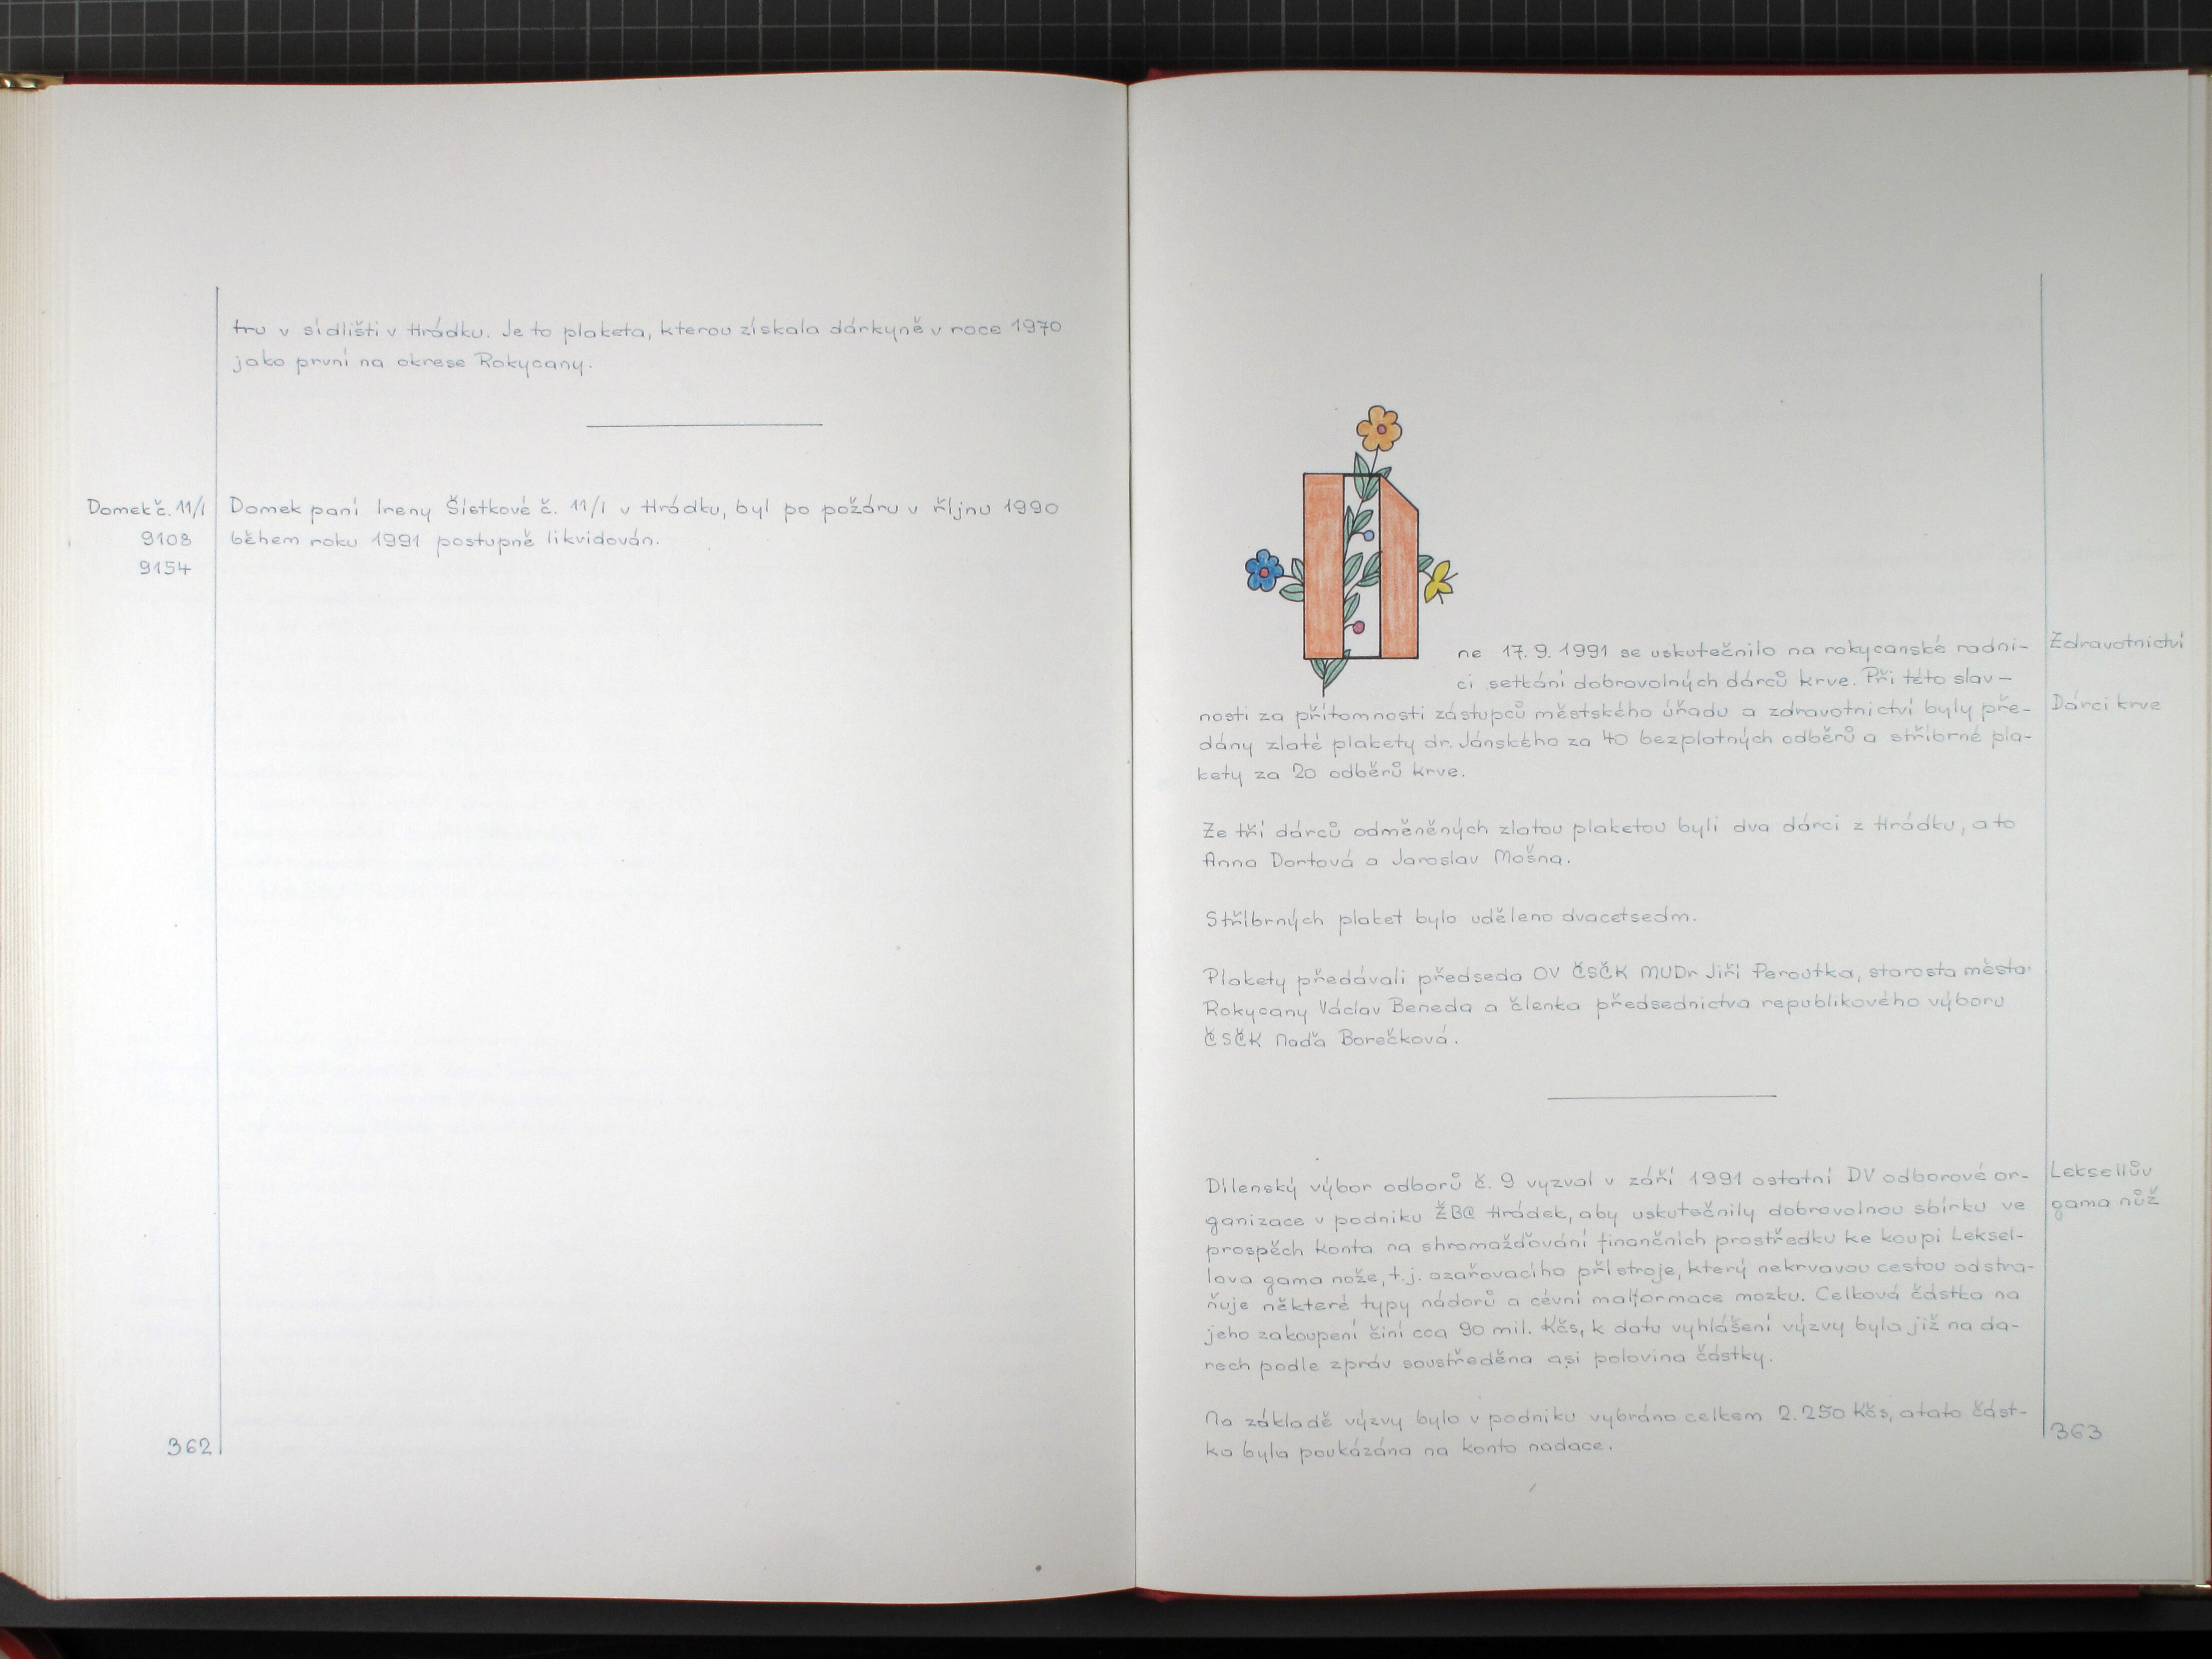 tru v sídlišti v Hrádku. Je to plaketa, kterou získala dárkyně v roce 1970
jako první na okrese Rokycany.
Domek č. 11/I
9108
9154
Domek paní Ireny Šístkové č. 11/I v Hrádku, byl po požáru v říjnu 1990
během roku 1991 postupně likvidován.
362
Dne 17. 9. 1991 se uskutečnilo na rokycanské radni-
ci setkání dobrovolných dárců krve. Při této slav-
nosti za přítomnosti zástupců městského úřadu a zdravotnictví byly pře-
dány zlaté plakety dr. Jánského za 40 bezplatných odběrů a stříbrné pla-
kety za 20 odběrů krve.
Zdravotnictví
Dárci krve
Ze tří dárců odměněných zlatou plaketou byli dva dárci z Hrádku, a to
Anna Dortová a Jaroslav Mošna.
Stříbrných plaket bylo uděleno dvacetsedm.
Plakety předávali předseda OV ČSČK MUDr Jiří Peroutka, starosta města
Rokycany Václav Beneda a členka předsednictva republikového výboru
ČSČK Naďa Borečková.
Dílenský výbor odborů č. 9 vyzval v září 1991 ostatní DV odborové or-
ganizace v podniku ŽBC Hrádek, aby uskutečnily dobrovolnou sbírku ve
prospěch konta na shromažďování finančních prostředku ke koupi Leksel-
lova gama nože, t.j. ozařovacího přístroje, který nekrvavou cestou odstra-
ňuje některé typy nádorů a cévní malformace mozku. Celková částka na
jeho zakoupení činí cca 90 mil. Kčs, k datu vyhlášení výzvy byla již na da-
rech podle zpráv soustředěna asi polovina částky.
Leksellův
gama nůž
Na základě výzvy bylo v podniku vybráno celkem 2.250 Kčs, a tato část-
ka byla poukázána na konto nadace.
363